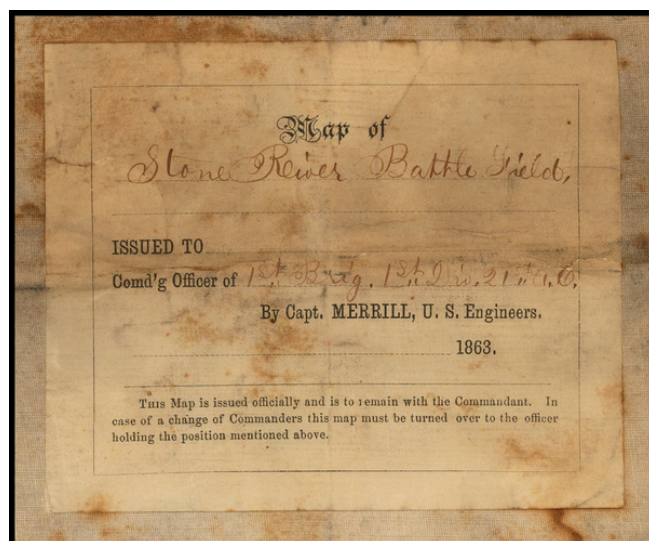 Map of
Stone River Battle Field,
ISSUED TO
Comd'g Officer of 1st Brig. 1st Div. 21st A. C.
By Capt. MERRILL, U. S. Engineers.
1863.
THIS Map is issued officially and is to remain with the Commandant. In
case of a change of Commanders this map must be turned over to the officer
holding the position mentioned above.